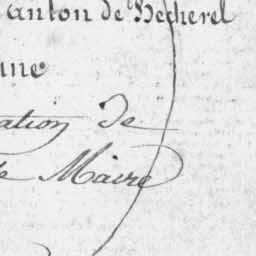 anton de Becherel
une
ation de
de Maire